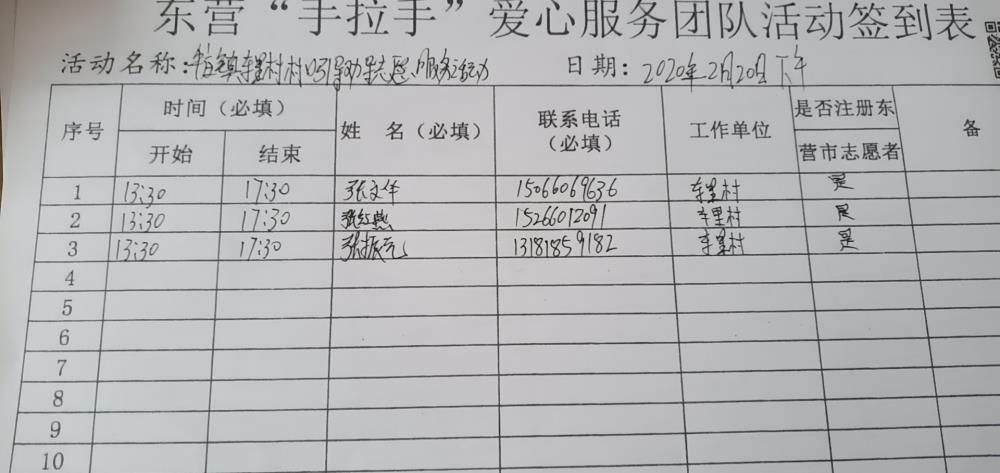 东营“手拉手”爱心服务团队活动签到表
活动名称: 镇车里村村口引导劝志愿服务活动 日期: 2020年2月20日下午
序号 时间（必填） 姓 名（必填） 联系电话（必填） 工作单位 是否注册东营市志愿者 备
开始 结束
1 13:30 17:30 张文华 15066069636 车里村 是
2 13:30 17:30 张红燕 15266012091 车里村 是
3 13:30 17:30 张振元 13181859182 车里村 是
4
5
6
7
8
9
10